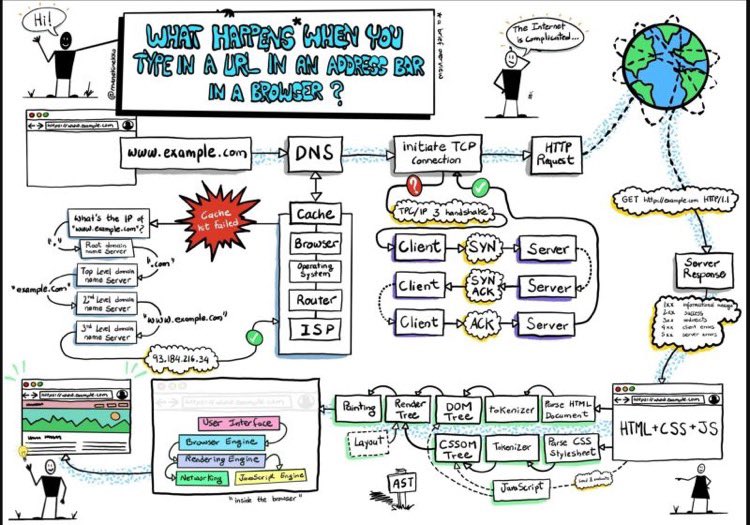 Hi!
WHAT HAPPENS WHEN YOU
TYPE IN A URL IN AN ADDRESS BAR
IN A BROWSER?
* a brief overview
The Internet
is complicated...
https://www.example.com
www.example.com
DNS
initiate TCP
Connection
HTTP
Request
GET http://example.com HTTP/1.1
Server
Response
1xx informational message
2xx success
3xx redirects
4xx client errors
5xx server errors
What's the IP of
"www.example.com"?
"."
Root domain
name Server
".com"
Top Level domain
name Server
"example.com"
2nd Level domain
name Server
"www.example.com"
3rd Level domain
name Server
93.184.216.34
Cache
hit failed
Cache
Browser
Operating
System
Router
ISP
?
TPC/IP 3 handshake
Client
SYN
Server
Client
SYN
ACK
Server
Client
ACK
Server
https://www.example.com
HTML+CSS+JS
Parse HTML
Document
tokenizer
DOM
Tree
Render
Tree
Painting
Layout
Parse CSS
Stylesheet
Tokenizer
CSSOM
Tree
JavaScript
AST
https://www.example.com
User Interface
Browser Engine
Rendering Engine
Networking
JavaScript Engine
"inside the browser"
https://www.example.com